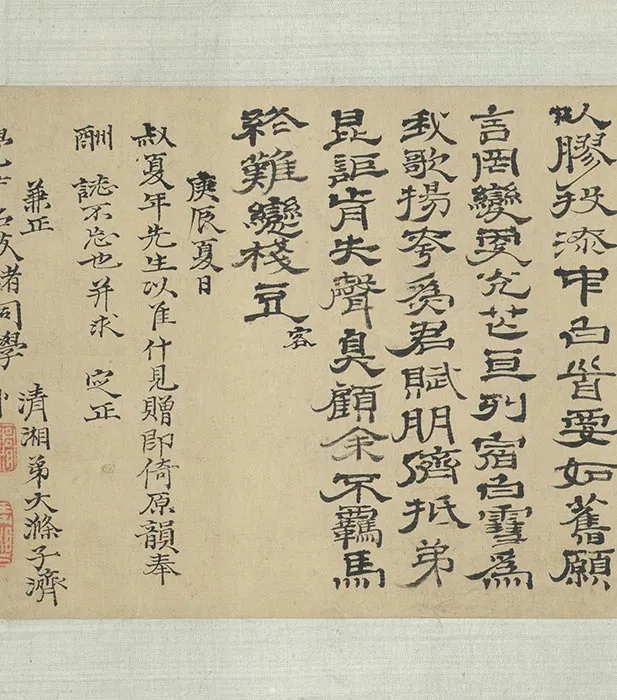 以膠投漆中白首愛如舊願
言罔變更光芒亘列宿白雪爲
我歌揚爲君賦朋儕抵弟
昆詎肯失聲臭顧余不羈馬
終難戀棧豆 客
庚辰夏日
叔夏年先生以佳什見贈即倚原韻奉
酬誌不忘也并求 定正
兼正 清湘弟大滌子濟
名友諸同學